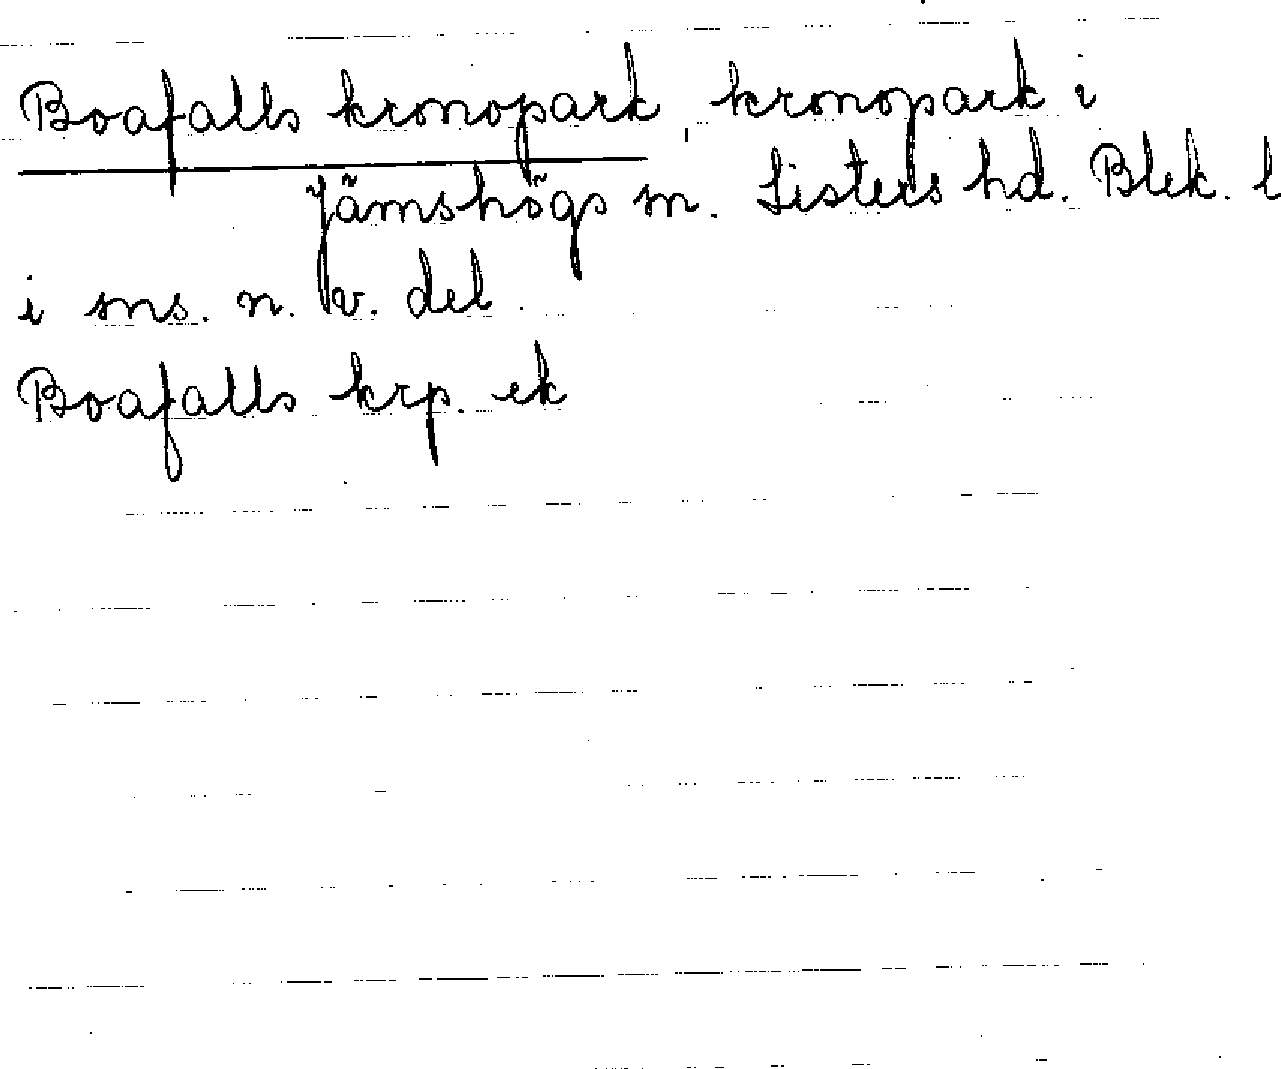 Boafalls kronopark, kronopark i
Jämshögs sn. Listers hd. Blek. l
i sns. n. v. del.
Boafalls krp. ek